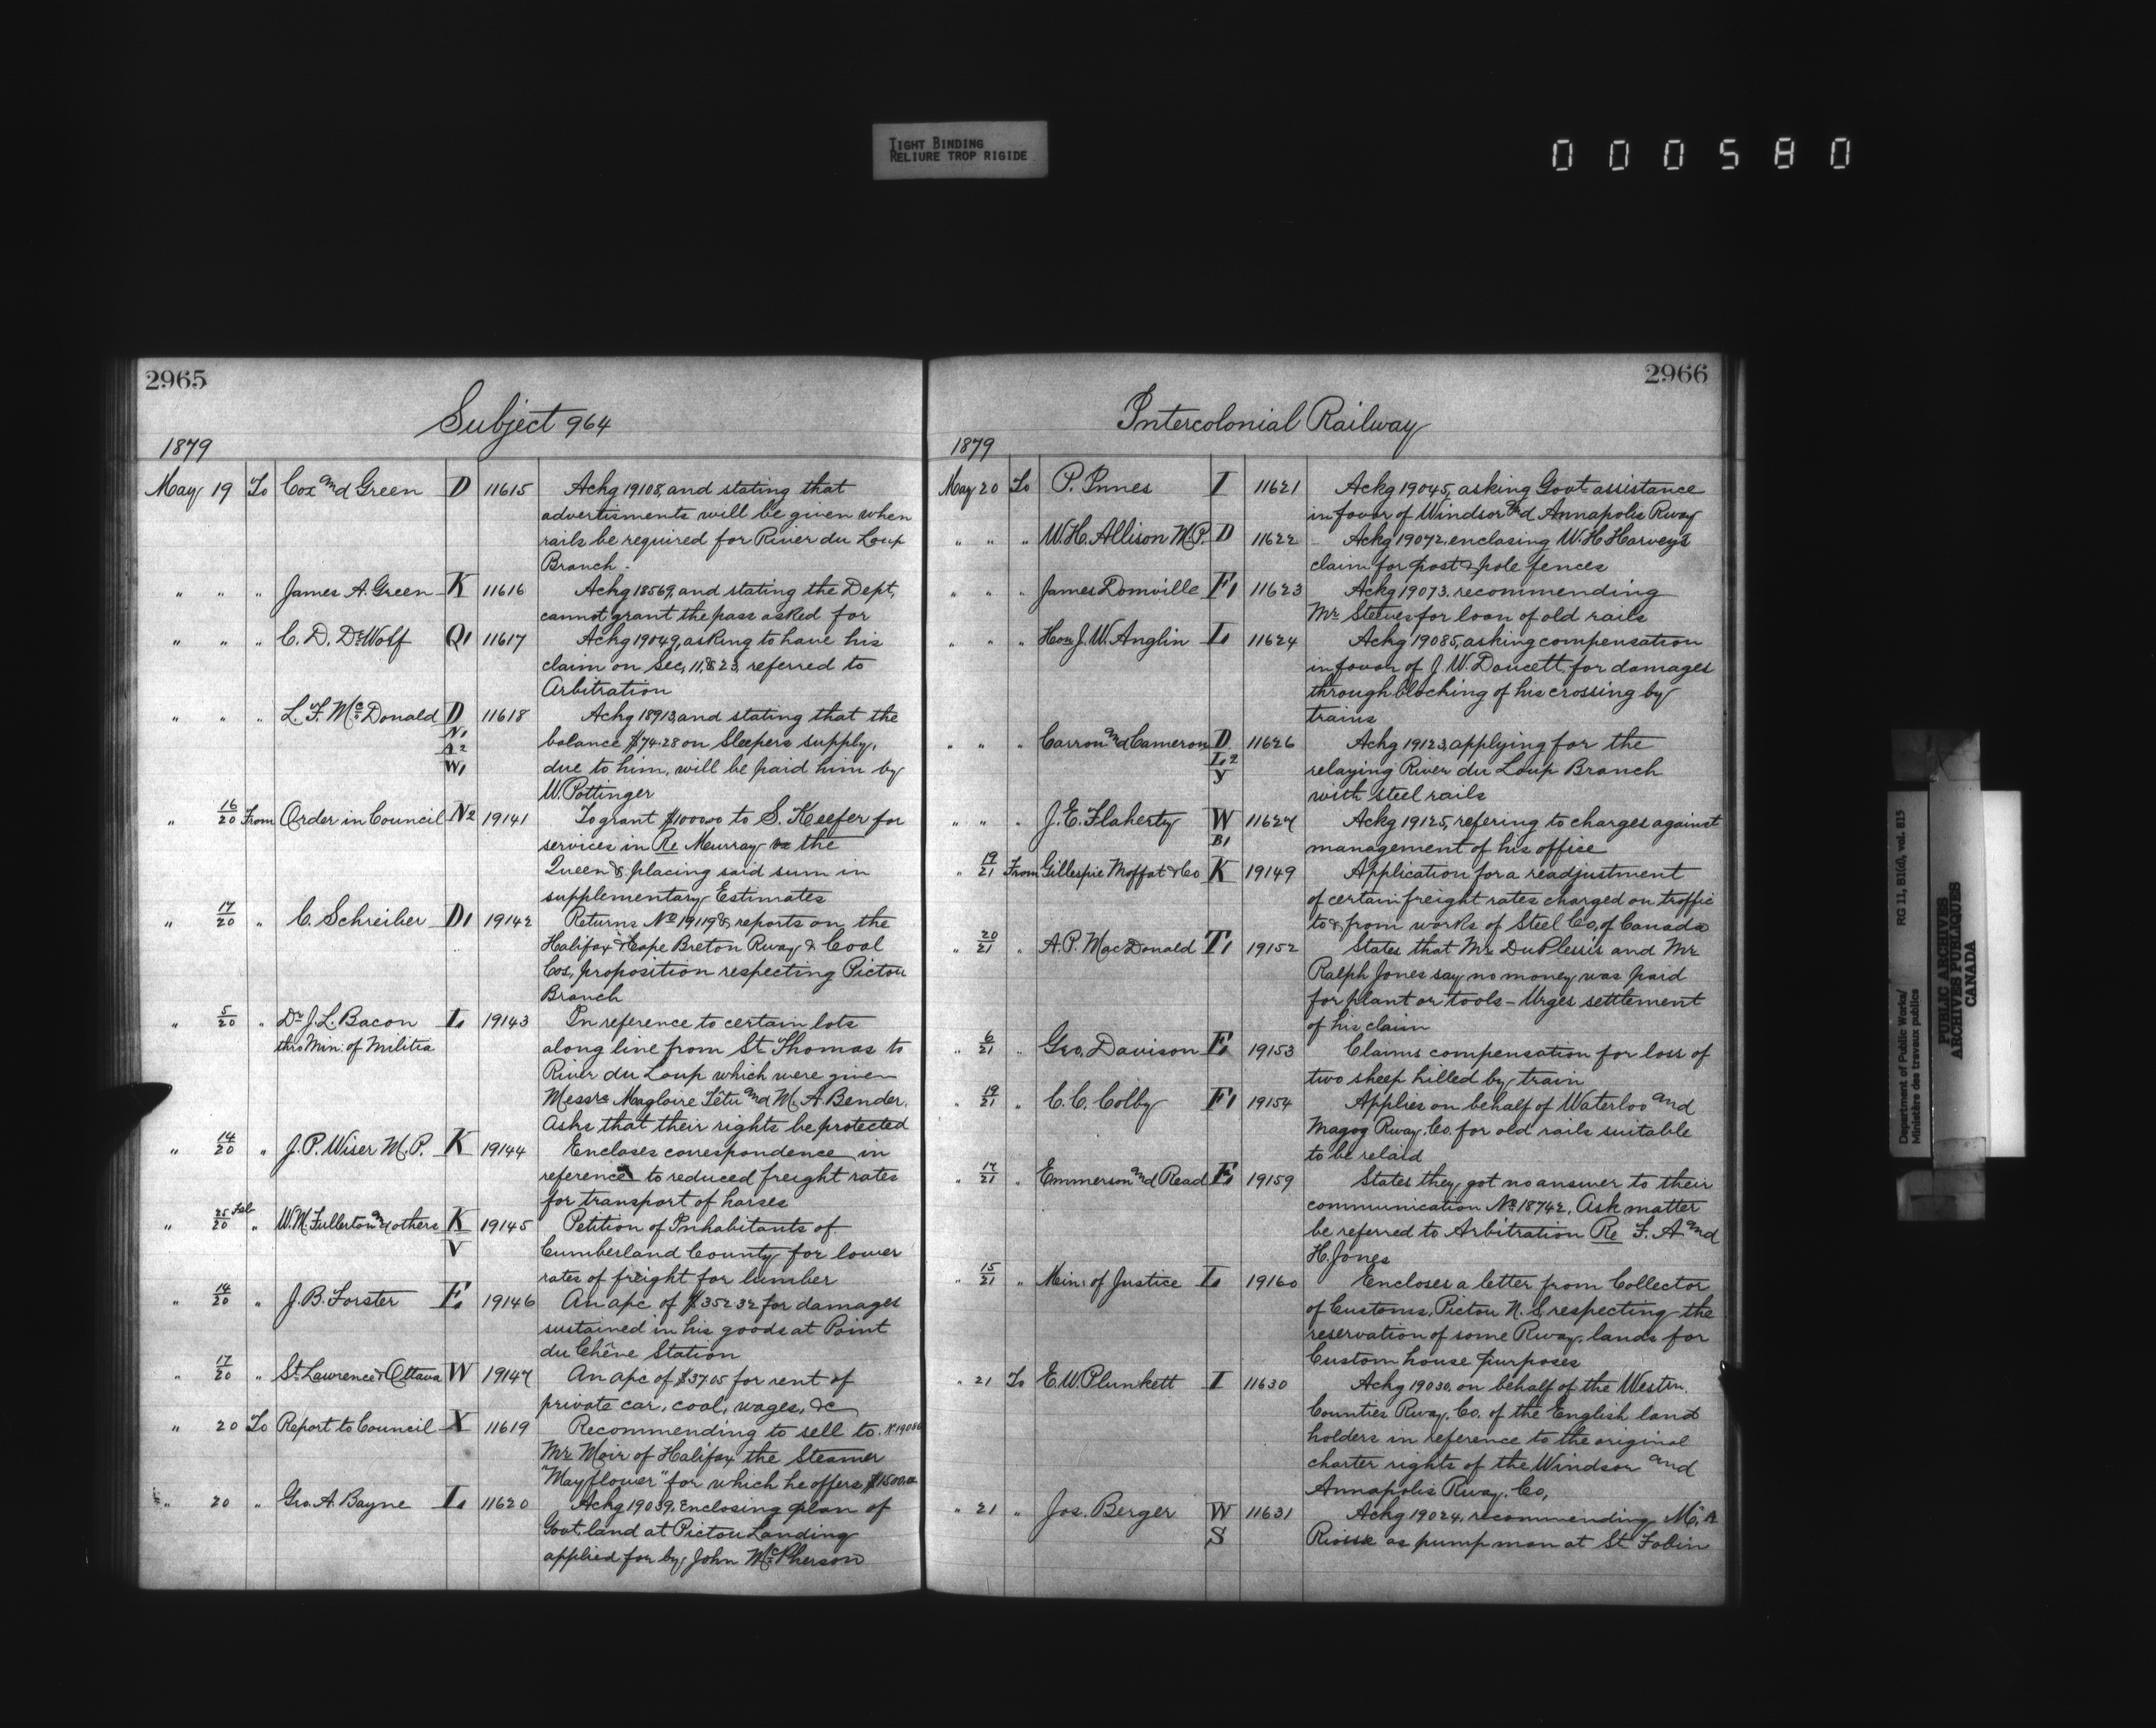 TIGHT BINDING
RELIURE TROP RIGIDE
000580
2965
Subject 964
1879
May 19 To Cox and Green D 11615 Ackg 19108, and stating that
advertisments will be given when
rails be required for River du Loup
Branch.
" " " James A. Green K 11616 Ackg 18569, and stating the Dept,
cannot grant the pass asked for
" " " C. D. DeWolf Q1 11617 Ackg 19049, asking to have his
claim on Sec, 11, & 23, referred to
Arbitration
" " " L. F. McDonald D 11618 Ackg 18913, and stating that the
N1 balance $74.28 on Sleepers supply,
A2
W1 due to him, will be paid him by
W. Pottinger
" 16/20 From Order in Council N2 19141 To grant $1000.00 to S. Keefer for
services in Re Murray vs the
Queen & placing said sum in
supplementary Estimates
" 17/20 " C. Schreiber D1 19142 Returns No 19119 & reports on the
Halifax & Cape Breton Rway & Coal
Cos, proposition respecting Pictou
Branch
" 5/20 " Dr J. L. Bacon L 19143 In reference to certain lots
thro Min: of Militia along line from St Thomas to
River du Loup which were given
Messrs Magloire Têtu and M. A. Bender.
Asks that their rights be protected
" 14/20 " J. P. Wiser M. P. K 19144 Encloses correspondence in
reference to reduced freight rates
for transport of horses
" 25 Feb/20 " W. M. Fullerton and others K 19145 Petition of Inhabitants of
V Cumberland County for lower
rates of freight for lumber
" 14/20 " J. B. Forster E 19146 An apc of $352 32 for damages
sustained in his goods at Point
du Chêne Station
" 17/20 " St. Lawrence & Ottawa W 19147 An apc of $37.05 for rent of
private car, coal, wages, &c
" 20 To Report to Council X 11619 Recommending to sell to
Mr Moir of Halifax the Steamer
"Mayflower" for which he offers $1500.00
" 20 " Geo. A. Bayne L 11620 Ackg 19039, Enclosing plan of
Govt. land at Pictou Landing
applied for by John McPherson
2966
Intercolonial Railway
1879
May 20 To P. Innes I 11621 Ackg 19045, asking Govt assistance
in favor of Windsor and Annapolis Rway
" " " W. H. Allison M.P. D 11622 Ackg 19072, enclosing W. H. Harvey's
claim for post & pole fences
" " " James Domville F1 11623 Ackg 19073, recommending
Mr Steeves for loan of old rails
" " " Hon J. W. Anglin L 11624 Ackg 19085, asking compensation
in favor of J. W. Doucett, for damages
through blocking of his crossing by
trains
" " " Carron and Cameron D 11626 Ackg 19123, applying for the
L2
Y relaying River du Loup Branch
with steel rails
" " " J. E. Flaherty W 11627 Ackg 19125, refering to charges against
B1 management of his office
" 19/21 From Gillespie Moffat & Co K 19149 Application for a readjustment
of certain freight rates charged on traffic
to & from works of Steel Co, of Canada
" 20/21 " A. P. MacDonald T1 19152 States that Mr DuPlessis and Mr
Ralph Jones say no money was paid
for plant or tools - Urges settlement
of his claim
" 6/21 " Geo. Davison E 19153 Claims compensation for loss of
two sheep killed by train
" 19/21 " C. C. Colby F1 19154 Applies on behalf of Waterloo and
Magog Rway. Co. for old rails suitable
to be relaid
" 17/21 " Emmerson and Read E 19159 States they got no answer to their
communication No 18742. Ask matter
be referred to Arbitration Re F. A and
H. Jones
" 15/21 " Min: of Justice L 19160 Encloses a letter from Collector
of Customs, Pictou N. S, respecting the
reservation of some Rway. lands for
Custom house purposes
" 21 To E. W. Plunkett I 11630 Ackg 19030, on behalf of the Westrn.
Counties Rway. Co. of the English land
holders in reference to the original
charter rights of the Windsor and
Annapolis Rway. Co,
" 21 " Jos. Berger W 11631 Ackg 19024, recommending M. A
S as pump man at St Fabin
Department of Public Works/ RG 11, B1(d), vol. 815
Ministère des travaux publics
PUBLIC ARCHIVES
ARCHIVES PUBLIQUES
CANADA